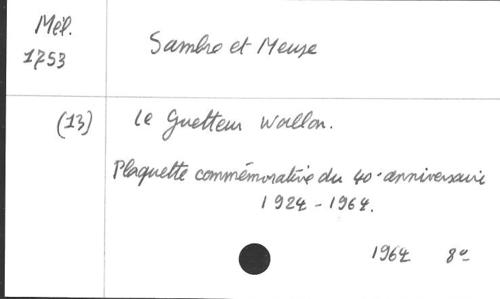 Mél.
1753
Sambre et Meuse
(13)
Le Guetteur Wallon.
Plaquette commémorative du 40e anniversaire
1924-1964.
1964 8°